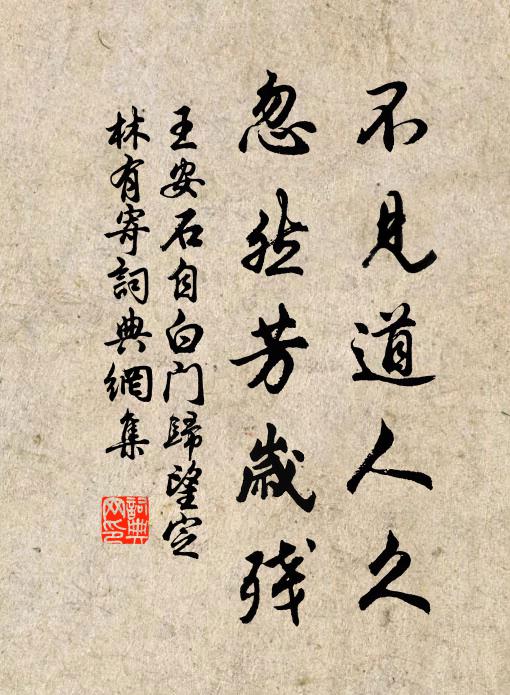 不見道人久
忽然芳歲殘
王安石自白门歸望定
林有寄詞典網集
詞典
网印